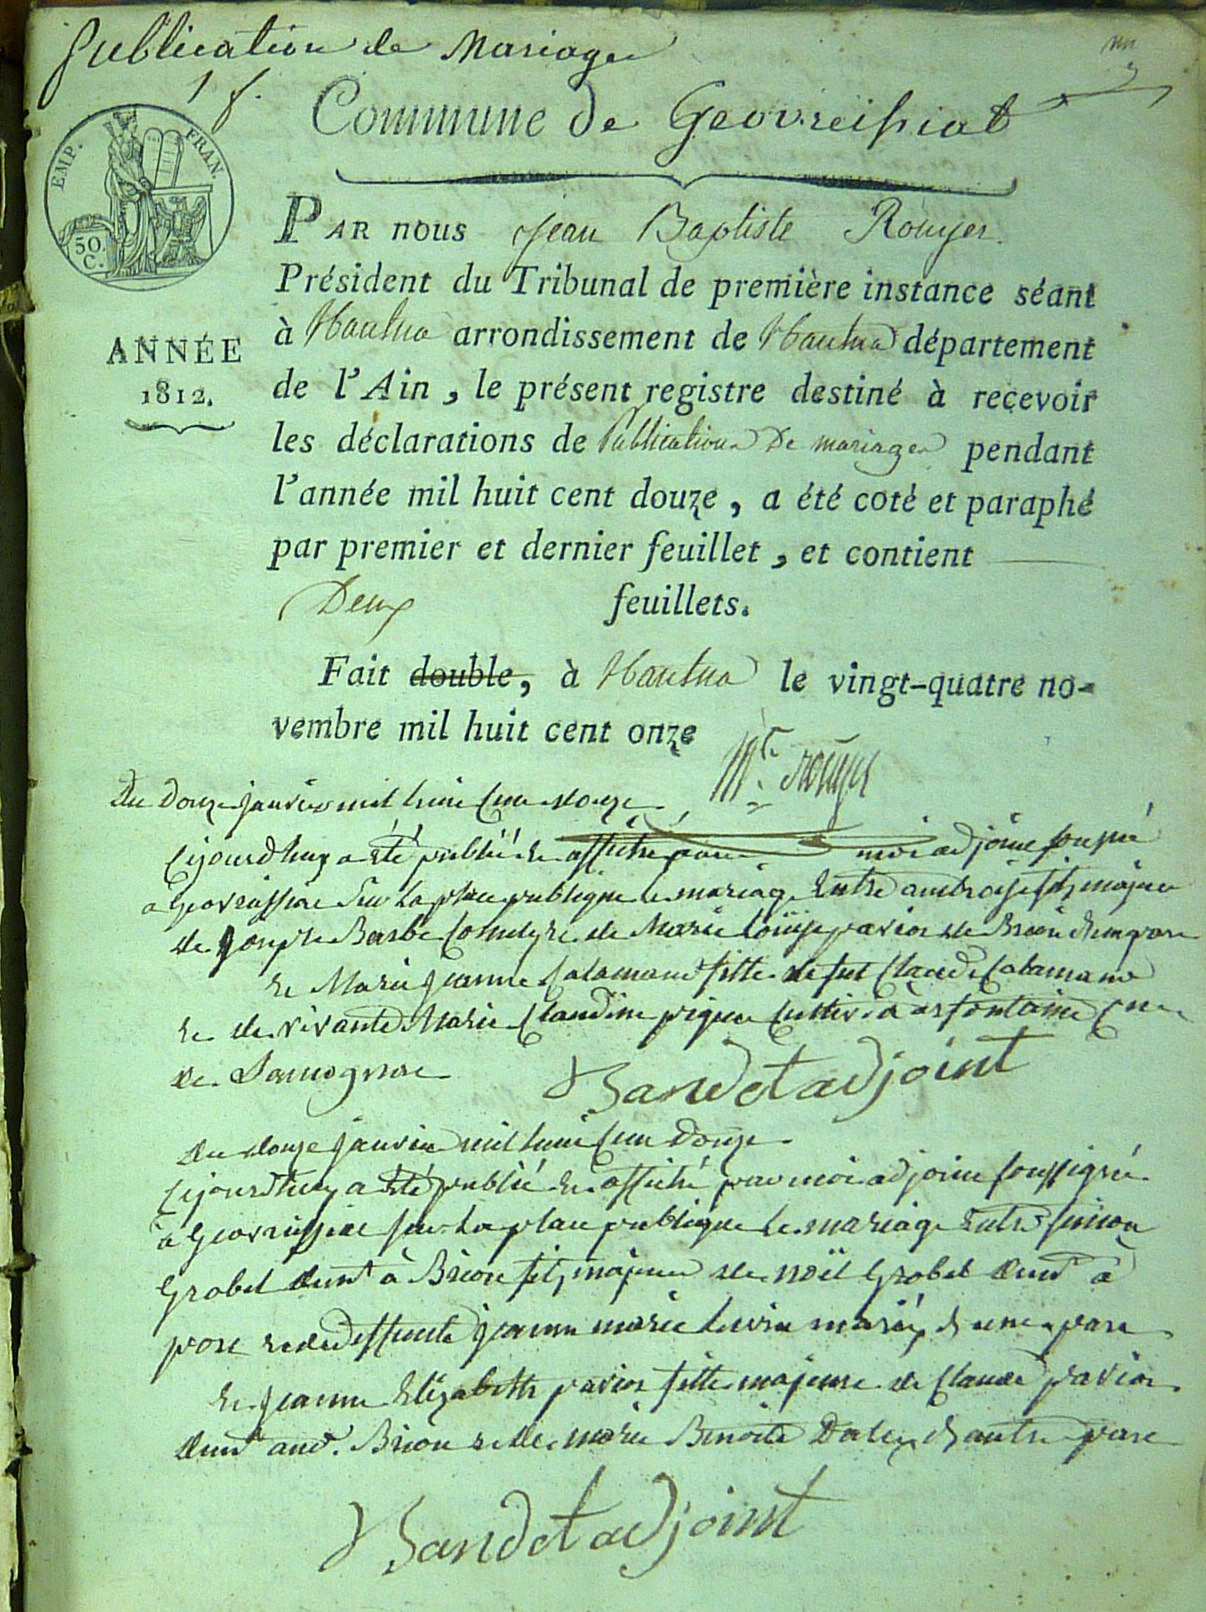 Publication de Mariage
1 f.
Commune de Geovreissiat
EMP. FRAN.
50.
C.
PAR nous Jean Baptiste Rouyer
Président du Tribunal de première instance séant
à Nantua arrondissement de Nantua département
ANNÉE
1812.
de l'Ain, le présent registre destiné à recevoir
les déclarations de Publication De mariage pendant
l'année mil huit cent douze, a été coté et paraphé
par premier et dernier feuillet, et contient
Deux feuillets.
Fait double, à Nantua le vingt-quatre no-
vembre mil huit cent onze
Du Douze janvier mil huit cent douze
Cejourdhuy a été publié et affiché par moi adjoint
a Geovreissiat Sur La place publique le mariage Entre ambroise fils majeur
de Joseph Barbe et de Marie Louise pavion de Brion d'une part
et Marie Jeanne Calamand fille de fut Claude Calamand
et de vivante Marie Claudine
de Samognat
adjoint
du douze janvier mil huit Cent Douze
Cejourdhuy a été publié et affiché par moi adjoint soussigné
à Geovreissiat sur La place publique Le mariage Entre simon
Grobet à Brion fils majeur de noël Grobet à
et de deffunte jeanne marie d'une part
et jeanne Elizabeth pavion fille majeure de Claude pavion
Brion et de marie Benoite d'autre part
adjoint